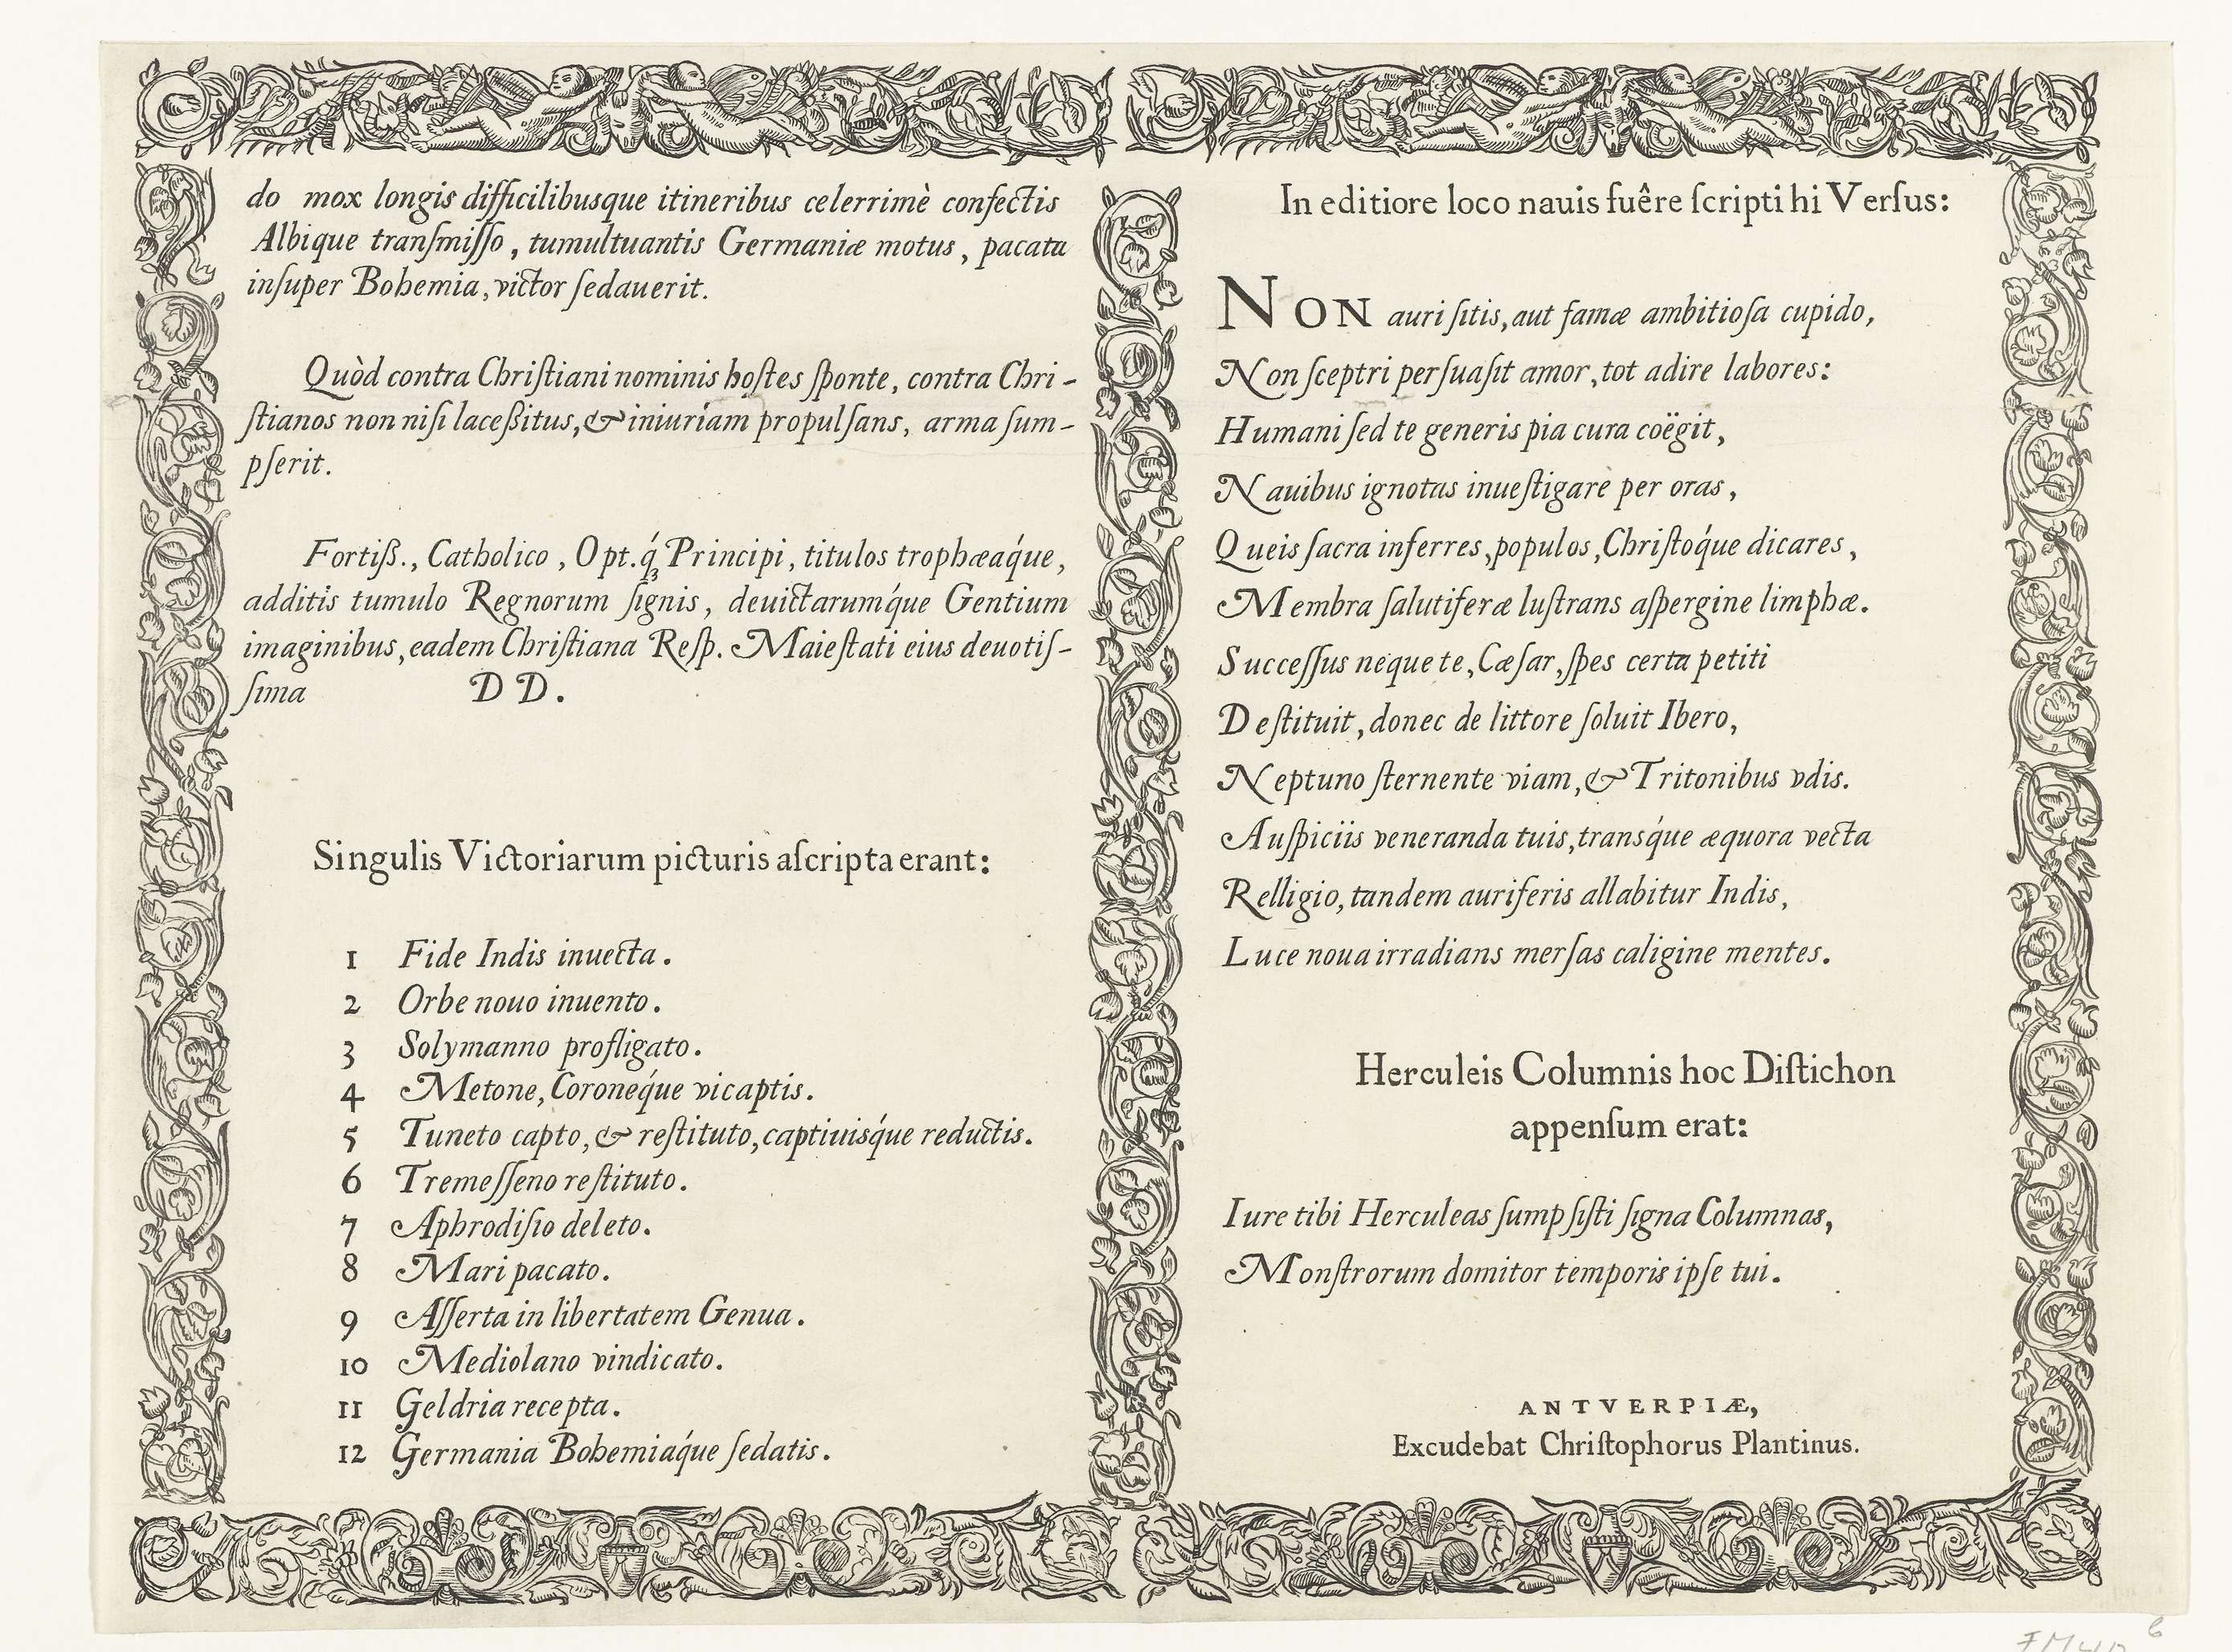 do mox longis difficilibusque itineribus celerrimè confectis
Albique tranſmiſſo, tumultuantis Germaniæ motus, pacata
inſuper Bohemia, victor ſedauerit.
Quòd contra Chriſtiani nominis hoſtes ſponte, contra Chri-
ſtianos non niſi laceßitus, & iniuriam propulſans, arma ſum-
pſerit.
Fortiß., Catholico, Opt.q́ꝫ Principi, titulos trophæaq́ue,
additis tumulo Regnorum ſignis, deuictarumq́ue Gentium
imaginibus, eadem Chriſtiana Reſp. Maieſtati eius deuotiſ-
ſima D D.
Singulis Victoriarum picturis aſcripta erant:
1 Fide Indis inuecta.
2 Orbe nouo inuento.
3 Solymanno profligato.
4 Metone, Coroneq́ue vi captis.
5 Tuneto capto, & reſtituto, captiuisq́ue reductis.
6 Tremeſſeno reſtituto.
7 Aphrodiſio deleto.
8 Mari pacato.
9 Aſſerta in libertatem Genua.
10 Mediolano vindicato.
11 Geldria recepta.
12 Germania Bohemiaq́ue ſedatis.
In editiore loco nauis fuêre ſcripti hi Verſus:
NON auri ſitis, aut famæ ambitioſa cupido,
Non ſceptri perſuaſit amor, tot adire labores:
Humani ſed te generis pia cura coëgit,
Nauibus ignotas inueſtigare per oras,
Queis ſacra inferres, populos, Chriſtoq́ue dicares,
Membra ſalutiferæ luſtrans aſpergine limphæ.
Succeſſus neque te, Cæſar, ſpes certa petiti
Deſtituit, donec de littore ſoluit Ibero,
Neptuno ſternente viam, & Tritonibus vdis.
Auſpiciis veneranda tuis, transq́ue æquora vecta
Relligio, tandem auriferis allabitur Indis,
Luce noua irradians merſas caligine mentes.
Herculeis Columnis hoc Diſtichon
appenſum erat:
Iure tibi Herculeas ſumpſiſti ſigna Columnas,
Monſtrorum domitor temporis ipſe tui.
ANTVERPIÆ,
Excudebat Chriſtophorus Plantinus.